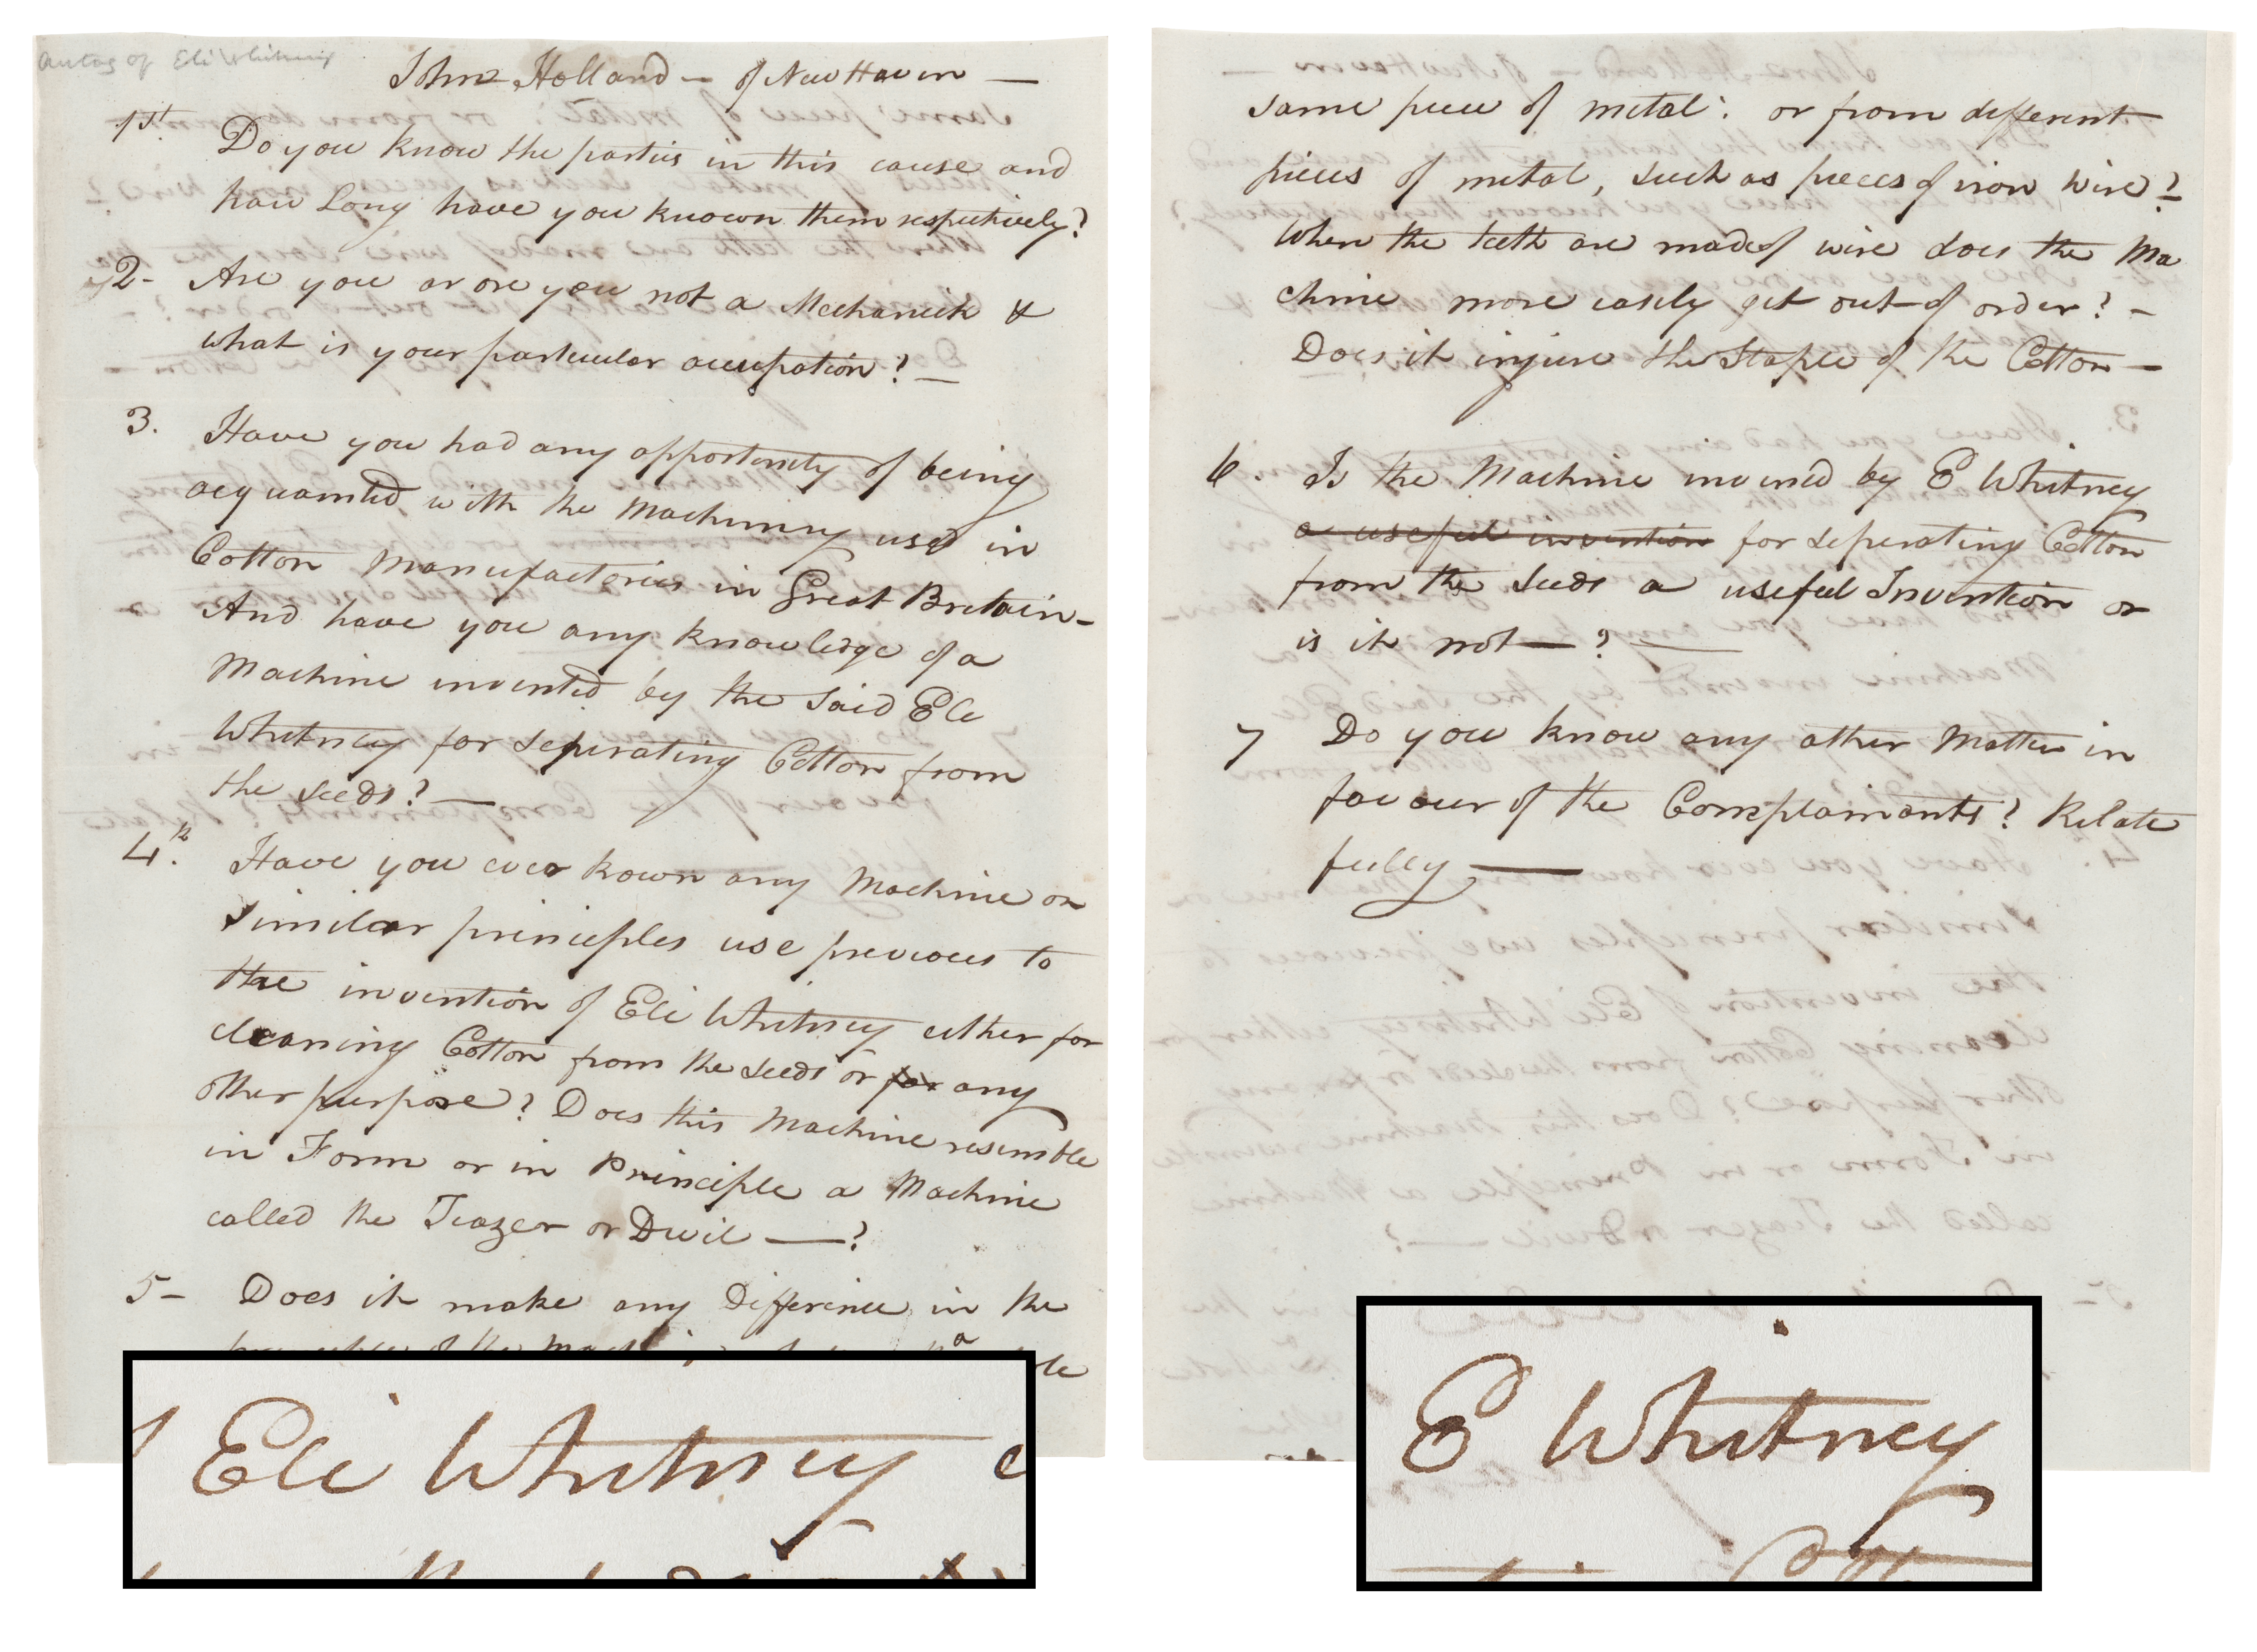 Autog of Eli Whitney
John Holland — of New Haven —
1st. Do you know the parties in this cause and
how Long have you known them respectively?
2- Are you or are you not a Mechanick &
what is your particular occupation? —
3. Have you had any opportunity of being
acquainted with the Machinery used in
Cotton Manufactories in Great Bretain-
And have you any knowledge of a
Machine invented by the said Eli
Whitney for seperating Cotton from
the seeds? —
4th. Have you ever kown any Machine on
similar principles use previous to
the invention of Eli Whitney either for
cleaning Cotton from the seeds or for any
other purpose? Does this Machine resemble
in Form or in Principle a Machine
called the Teazer or Devil —?
5- Does it make any Difference in the
of the
Eli Whitney
same piece of metal: or from different
pieces of metal, such as pieces of iron wire?
When the teeth are made of wire does the Ma
chine more easily get out of order? -
Does it injure the Staple of the Cotton —
6. Is the Machine invened by E Whitney
a useful invention for seperating Cotton
from the seeds a useful Invention or
is it not — ? —
7 Do you know any other Matter in
favour of the Complainants? Relate
fully —
E Whitney